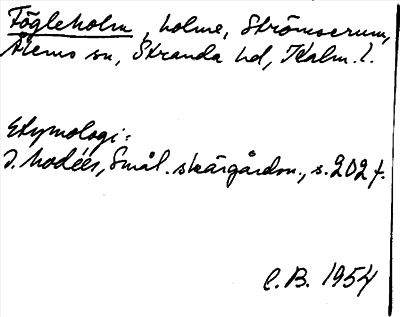 Fögleholm, holme, Strömserum,
Ålems sn, Stranda hd, Kalm. l.
Etymologi:
J. Modéer, Smål. skärgårdsn., s. 202 f.
C.B. 1954